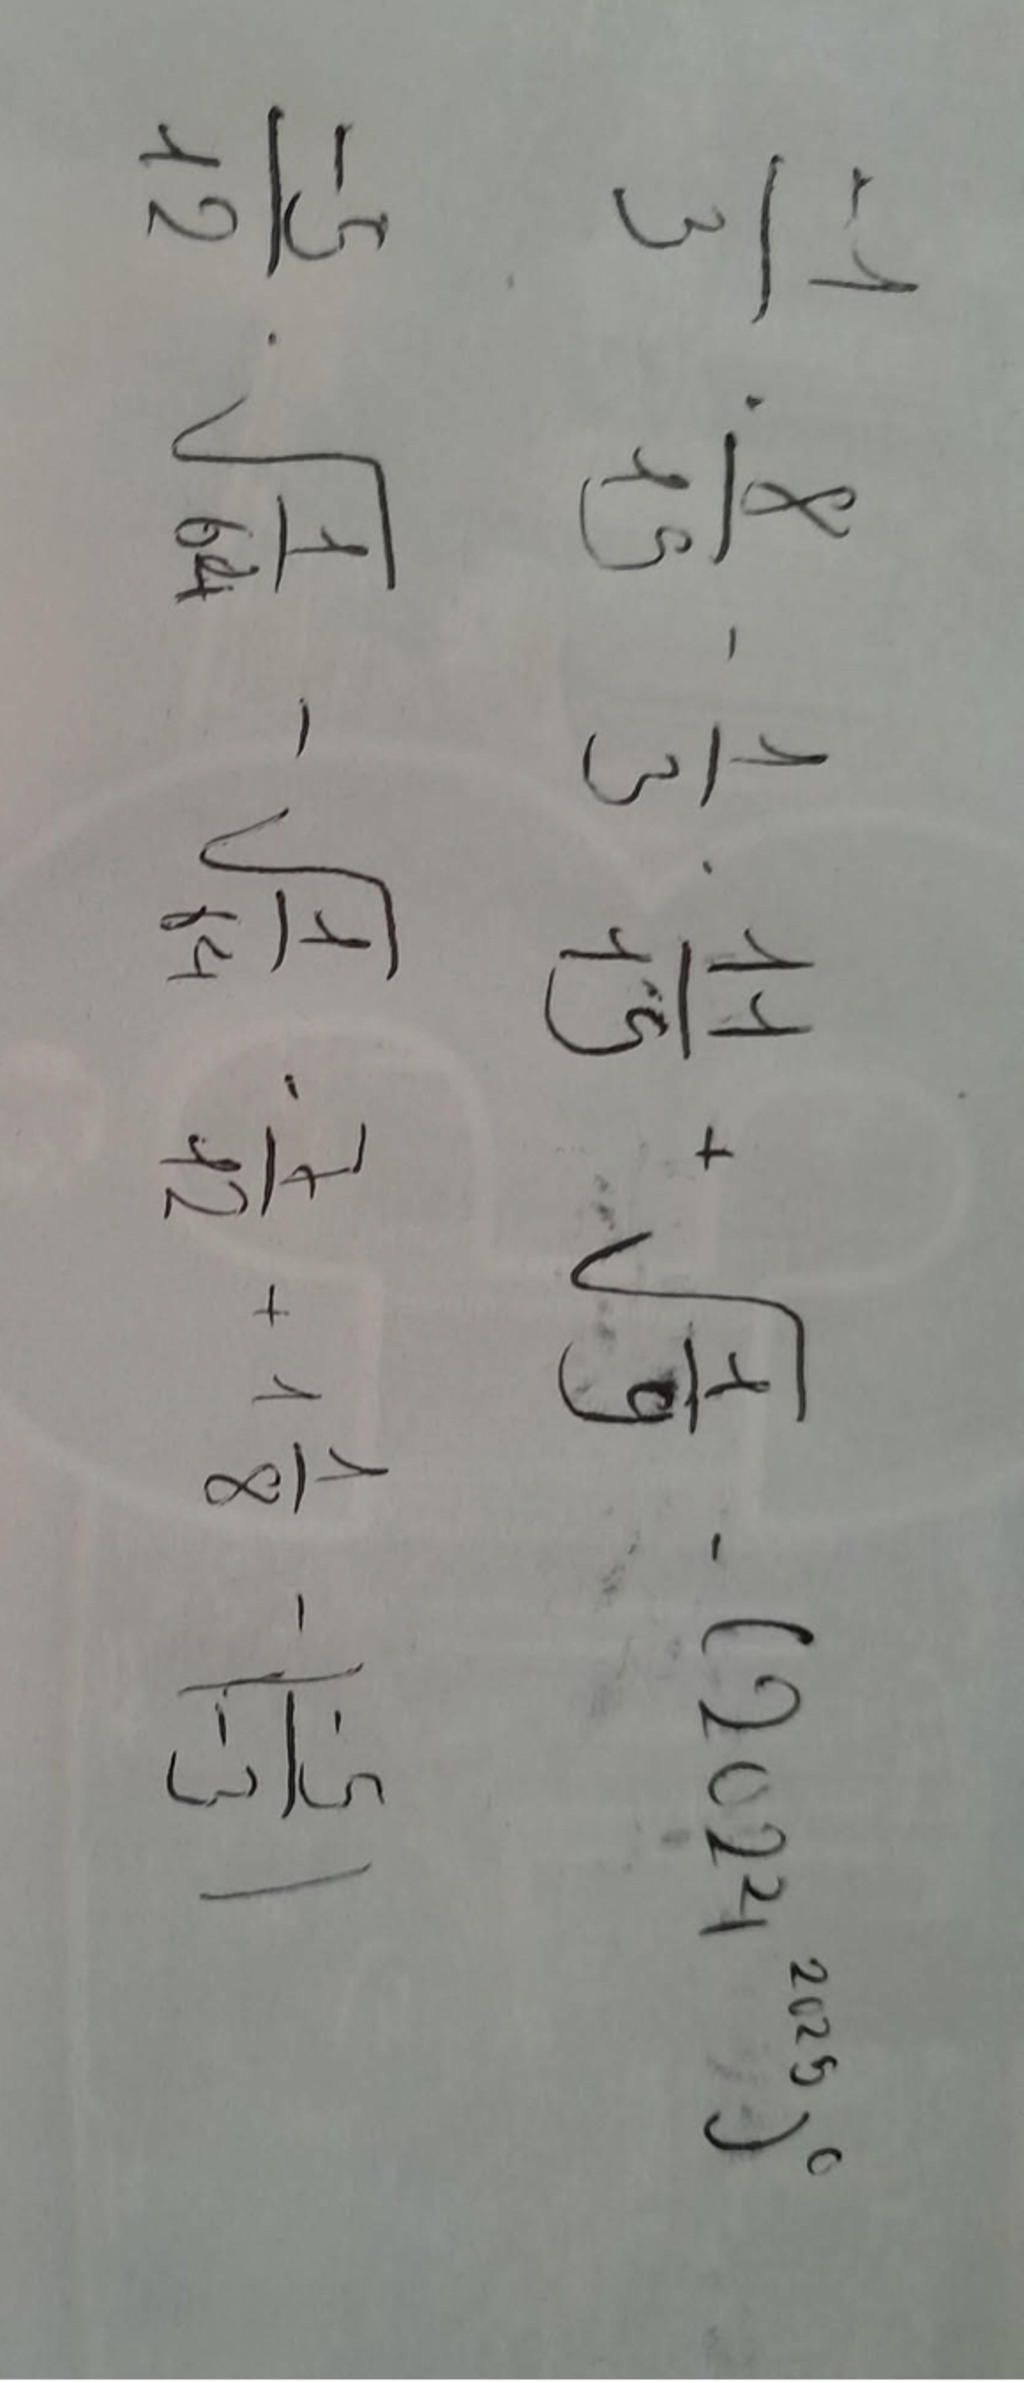 \frac{-1}{3} \cdot \frac{8}{15} - \frac{1}{3} \cdot \frac{11}{15} + \sqrt{\frac{1}{9}} - (2024^{2025})^0
\frac{-5}{12} \cdot \sqrt{\frac{1}{64}} - \sqrt{\frac{1}{64}} \cdot \frac{7}{12} + 1\frac{1}{8} - |\frac{-5}{-3}|